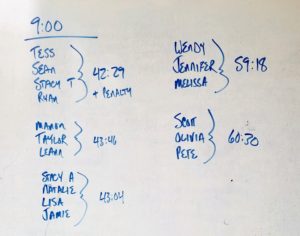 9:00
TESS
SEAN
STACY T
RYAN
42:29
+ PENALTY
TAYLOR
LEANN
43:46
STACY A
NATALIE
LISA
JAMIE
43:04
WENDY
JENNIFER
MELISSA
59:18
SCOTT
OLIVIA
PETE
60:30